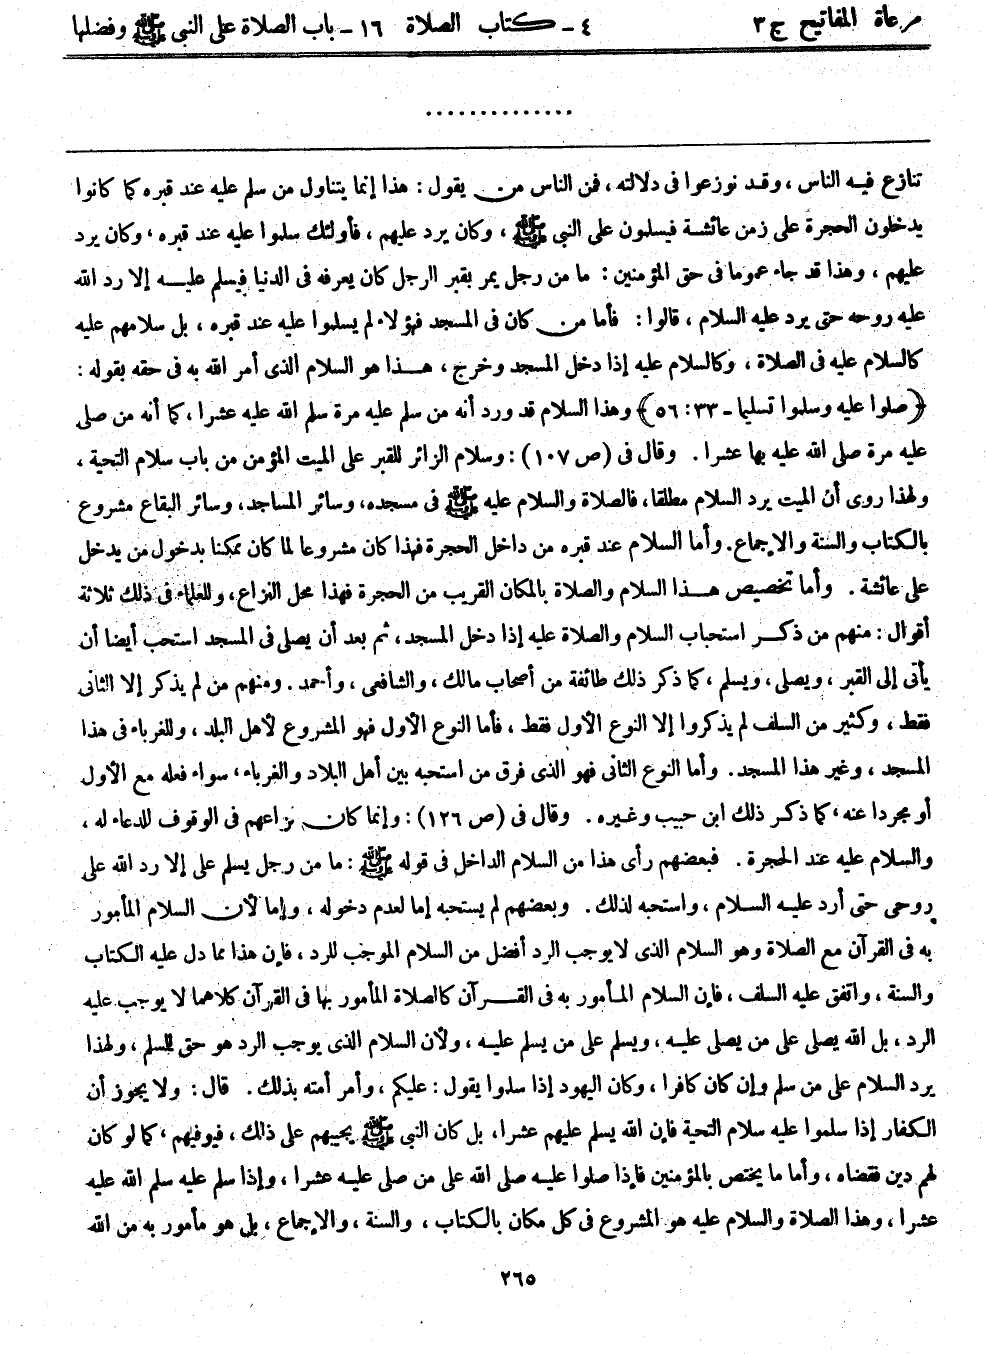 مرعاة المفاتيح ج ٣ ٤ - كتاب الصلاة ١٦ - باب الصلاة على النبي ﷺ وفضلها
..............
تنازع فيه الناس ، وقد نوزعوا فى دلالته ، فمن الناس من يقول : هذا إنما يتناول من سلم عليه عند قبره كما كانوا
يدخلون الحجرة على زمن عائشة فيسلمون على النبي ﷺ ، وكان يرد عليهم ، فأولئك سلموا عليه عند قبره ، وكان يرد
عليهم ، وهذا قد جاء عموما فى حق المؤمنين : ما من رجل يمر بقبر الرجل كان يعرفه فى الدنيا فيسلم عليه إلا رد الله
عليه روحه حتى يرد عليه السلام ، قالوا : فأما من كان فى المسجد فهؤلاء لم يسلموا عليه عند قبره ، بل سلامهم عليه
كالسلام عليه فى الصلاة ، وكالسلام عليه إذا دخل المسجد وخرج ، هذا هو السلام الذى أمر الله به فى حقه بقوله :
﴿ صلوا عليه وسلموا تسليما - ٣٣ : ٥٦ ﴾ وهذا السلام قد ورد أنه من سلم عليه مرة سلم الله عليه عشرا ، كما أنه من صلى
عليه مرة صلى الله عليه بها عشرا . وقال فى (ص ١٠٧) : وسلام الزائر للقبر على الميت المؤمن من باب سلام التحية ،
ولهذا روى أن الميت يرد السلام مطلقا ، فالصلاة والسلام عليه ﷺ فى مسجده ، وسائر المساجد ، وسائر البقاع مشروع
بالكتاب والسنة والإجماع . وأما السلام عند قبره من داخل الحجرة فهذا كان مشروعا لما كان ممكنا بدخول من يدخل
على عائشة . وأما تخصيص هذا السلام والصلاة بالمكان القريب من الحجرة فهذا محل النزاع ، وللعلماء فى ذلك ثلاثة
أقوال : منهم من ذكر استحباب السلام والصلاة عليه إذا دخل المسجد ، ثم بعد أن يصلى فى المسجد استحب أيضا أن
يأتى إلى القبر ، ويصلى ، ويسلم ، كما ذكر ذلك طائفة من أصحاب مالك ، والشافعى ، وأحمد . ومنهم من لم يذكر إلا الثانى
فقط ، وكثير من السلف لم يذكروا إلا النوع الأول فقط ، فأما النوع الأول فهو المشروع لأهل البلد ، وللغرباء فى هذا
المسجد ، وغير هذا المسجد . وأما النوع الثانى فهو الذى فرق من استحبه بين أهل البلاد والغرباء ، سواء فعله مع الأول
أو مجردا عنه ، كما ذكر ذلك ابن حبيب وغيره . وقال فى (ص ١٢٦) : وإنما كان نزاعهم فى الوقوف للدعاء له ،
والسلام عليه عند الحجرة . فبعضهم رأى هذا من السلام الداخل فى قوله ﷺ : ما من رجل يسلم على إلا رد الله على
روحى حتى أرد عليه السلام ، واستحبه لذلك . وبعضهم لم يستحبه إما لعدم دخوله ، وإما لأن السلام المأمور
به فى القرآن مع الصلاة وهو السلام الذى لا يوجب الرد أفضل من السلام الموجب للرد ، فإن هذا مما دل عليه الكتاب
والسنة ، واتفق عليه السلف ، فإن السلام المأمور به فى القرآن كالصلاة المأمور بها فى القرآن كلاهما لا يوجب عليه
الرد ، بل الله يصلى على من يصلى عليه ، ويسلم على من يسلم عليه ، ولأن السلام الذى يوجب الرد هو حق للمسلم ، ولهذا
يرد السلام على من سلم وإن كان كافرا ، وكان اليهود إذا سلموا يقول : عليكم ، وأمر أمته بذلك . قال : ولا يجوز أن
الكفار إذا سلموا عليه سلام التحية فإن الله يسلم عليهم عشرا ، بل كان النبي ﷺ يجيبهم على ذلك ، فيوفيهم ، كما لو كان
لهم دين فقضاه ، وأما ما يختص بالمؤمنين فإذا صلوا عليه صلى الله على من صلى عليه عشرا ، وإذا سلم عليه سلم الله عليه
عشرا ، وهذا الصلاة والسلام عليه هو المشروع فى كل مكان بالكتاب ، والسنة ، والإجماع ، بل هو مأمور به من الله
٢٦٥